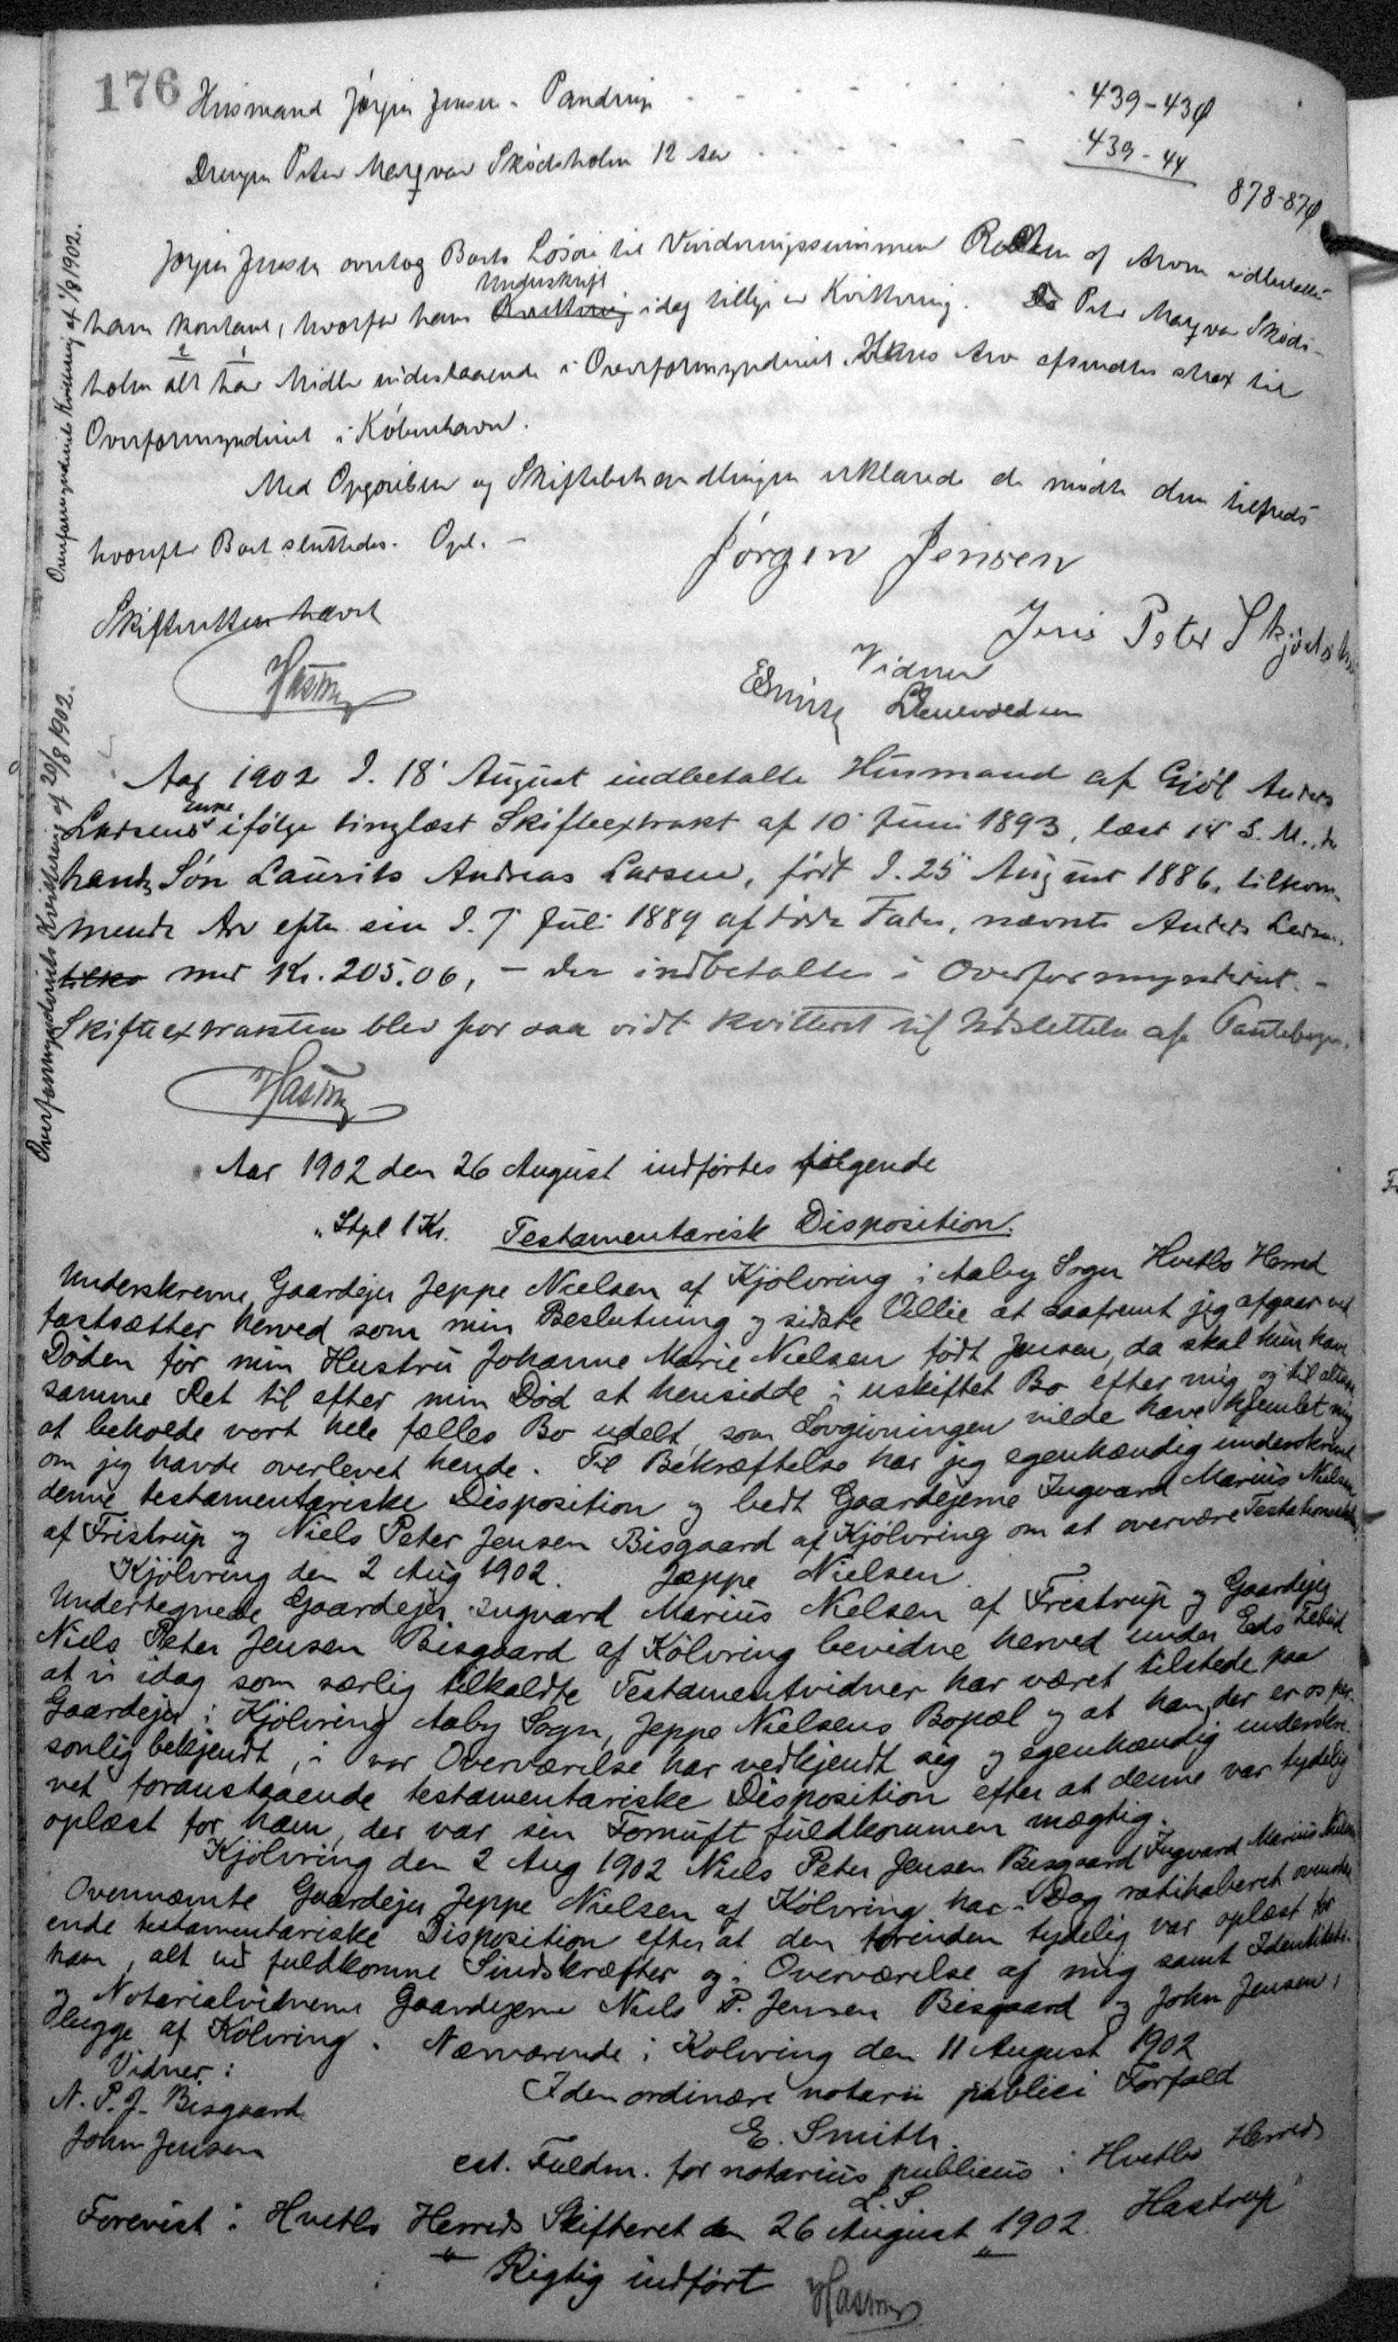 176
Husmand Jørgen Jensen - Pandrup - - - - - - 439-43Ø
Drengen Peter Marqvar Sködsholm 12 Aar - - - - - 439-44
878-87Ø
Jørgen Jensen overtog Boets Løsøre til Vurderingssummen Resten af Arven udbetaltes
ham kontant, hvorfor hans Underskrift idag tillige er Kvittering. Da Peter Marqvar Skøds-
holm alt har Midler indestaaende i Overformynderiet Hans Arv afsendtes strax til
Overformynderiet i København.
Med Opgørelsen og Skiftebehandlingen erklærede de mødte dem tilfreds
hvorefter Boet sluttedes. Opl. -
Jörgen Jensen
Skifteretten hævet
Jens Peter Skjöds
Hastrup
Vidner
ESmith
Overformynderiets Kvittering af 1/8 1902.
Overformynderiets Kvittering af 20/8 1902.
Aar 1902 d. 18' August indbetalte Husmand af Gjöl Anders
Larsens Enke ifølge tinglæst Skifteextrakt af 10' Juni 1893, læst 14' s. M., den
hendes Sön Laurits Andreas Larsen, född d. 25' August 1886, tilkom-
mende Arv efter sin d. 7' Juli 1889 afdöde Fader, nævnte Anders Larsen,
tilko med Kr. 205,06, - der indbetaltes i Overformynderiet. -
Skifteextrakten blev for saa vidt kvitteret til Udslettelse af Pantebogen.
Hastrup
Aar 1902 den 26 August indførtes følgende
"Stpl 1 Kr. Testamentarisk Disposition.
Underskrevne Gaardejer Jeppe Nielsen af Kjölvring i Aaby Sogn Hvetbo Herred
fastsætter herved som min Beslutning og sidste Villie at saafremt jeg afgaar ved
Døden før min Hustru Johanne Marie Nielsen født Jensen, da skal hun have
samme Ret til efter min Død at hensidde i uskiftet Bo efter mig og til altsaa
at beholde vort hele fælles Bo udelt, som Lovgivningen vilde have hjemlet mig
om jeg havde overlevet hende. Til Bekræftelse har jeg egenhændig underskrevet
denne testamentariske Disposition og bedt Gaardejerne Ingvard Marius Nielsen
af Fristrup og Niels Peter Jensen Bisgaard af Kjölvring om at overvære
Kjölvring den 2 Aug 1902. Jeppe Nielsen.
Undertegnede Gaardejer Ingvard Marius Nielsen af Fristrup og Gaardejer
Niels Peter Jensen Bisgaard af Kölvring bevidne herved under Eds Tilbud
at vi idag som særlig tilkaldte Testamentvidner har været tilstede paa
Gaardejer i Kjölvring Aaby Sogn, Jeppe Nielsens Bopæl og at han, der er os per-
sonlig bekjendt, i vor Overværelse har vedkjendt sig og egenhændig underskre-
vet foranstaaende testamentariske Disposition efter at denne var tydelig
oplæst for ham, der var sin Fornuft fuldkommen mægtig.
Kjölvring den 2 Aug 1902 Niels Peter Jensen Bisgaard Ingvard Marius Nielsen
Ovennævnte Gaardejer Jeppe Nielsen af Kölvring har i Dag ratihaberet ovenstaa-
ende testamentariske Disposition efter at den forinden tydelig var oplæst for
ham, alt ved fuldkomne Sindskræfter og i Overværelse af mig samt Identitets-
og Notarialvidnerne Gaardejerne Niels P. Jensen Bisgaard og John Jensen,
begge af Kölvring. Nærværende i Kolvring den 11 August 1902
Vidner:
I den ordinære notarii publici Forfald
N. P. J. Bisgaard
E. Smith.
John Jensen
cst. Fuldm. for notarius publicus i Hvetbo Herreds
L. S.
Forevist i Hvetbo Herreds Skifteret den 26 August 1902. Hastrup"
" Rigtig indført "
Hastrup